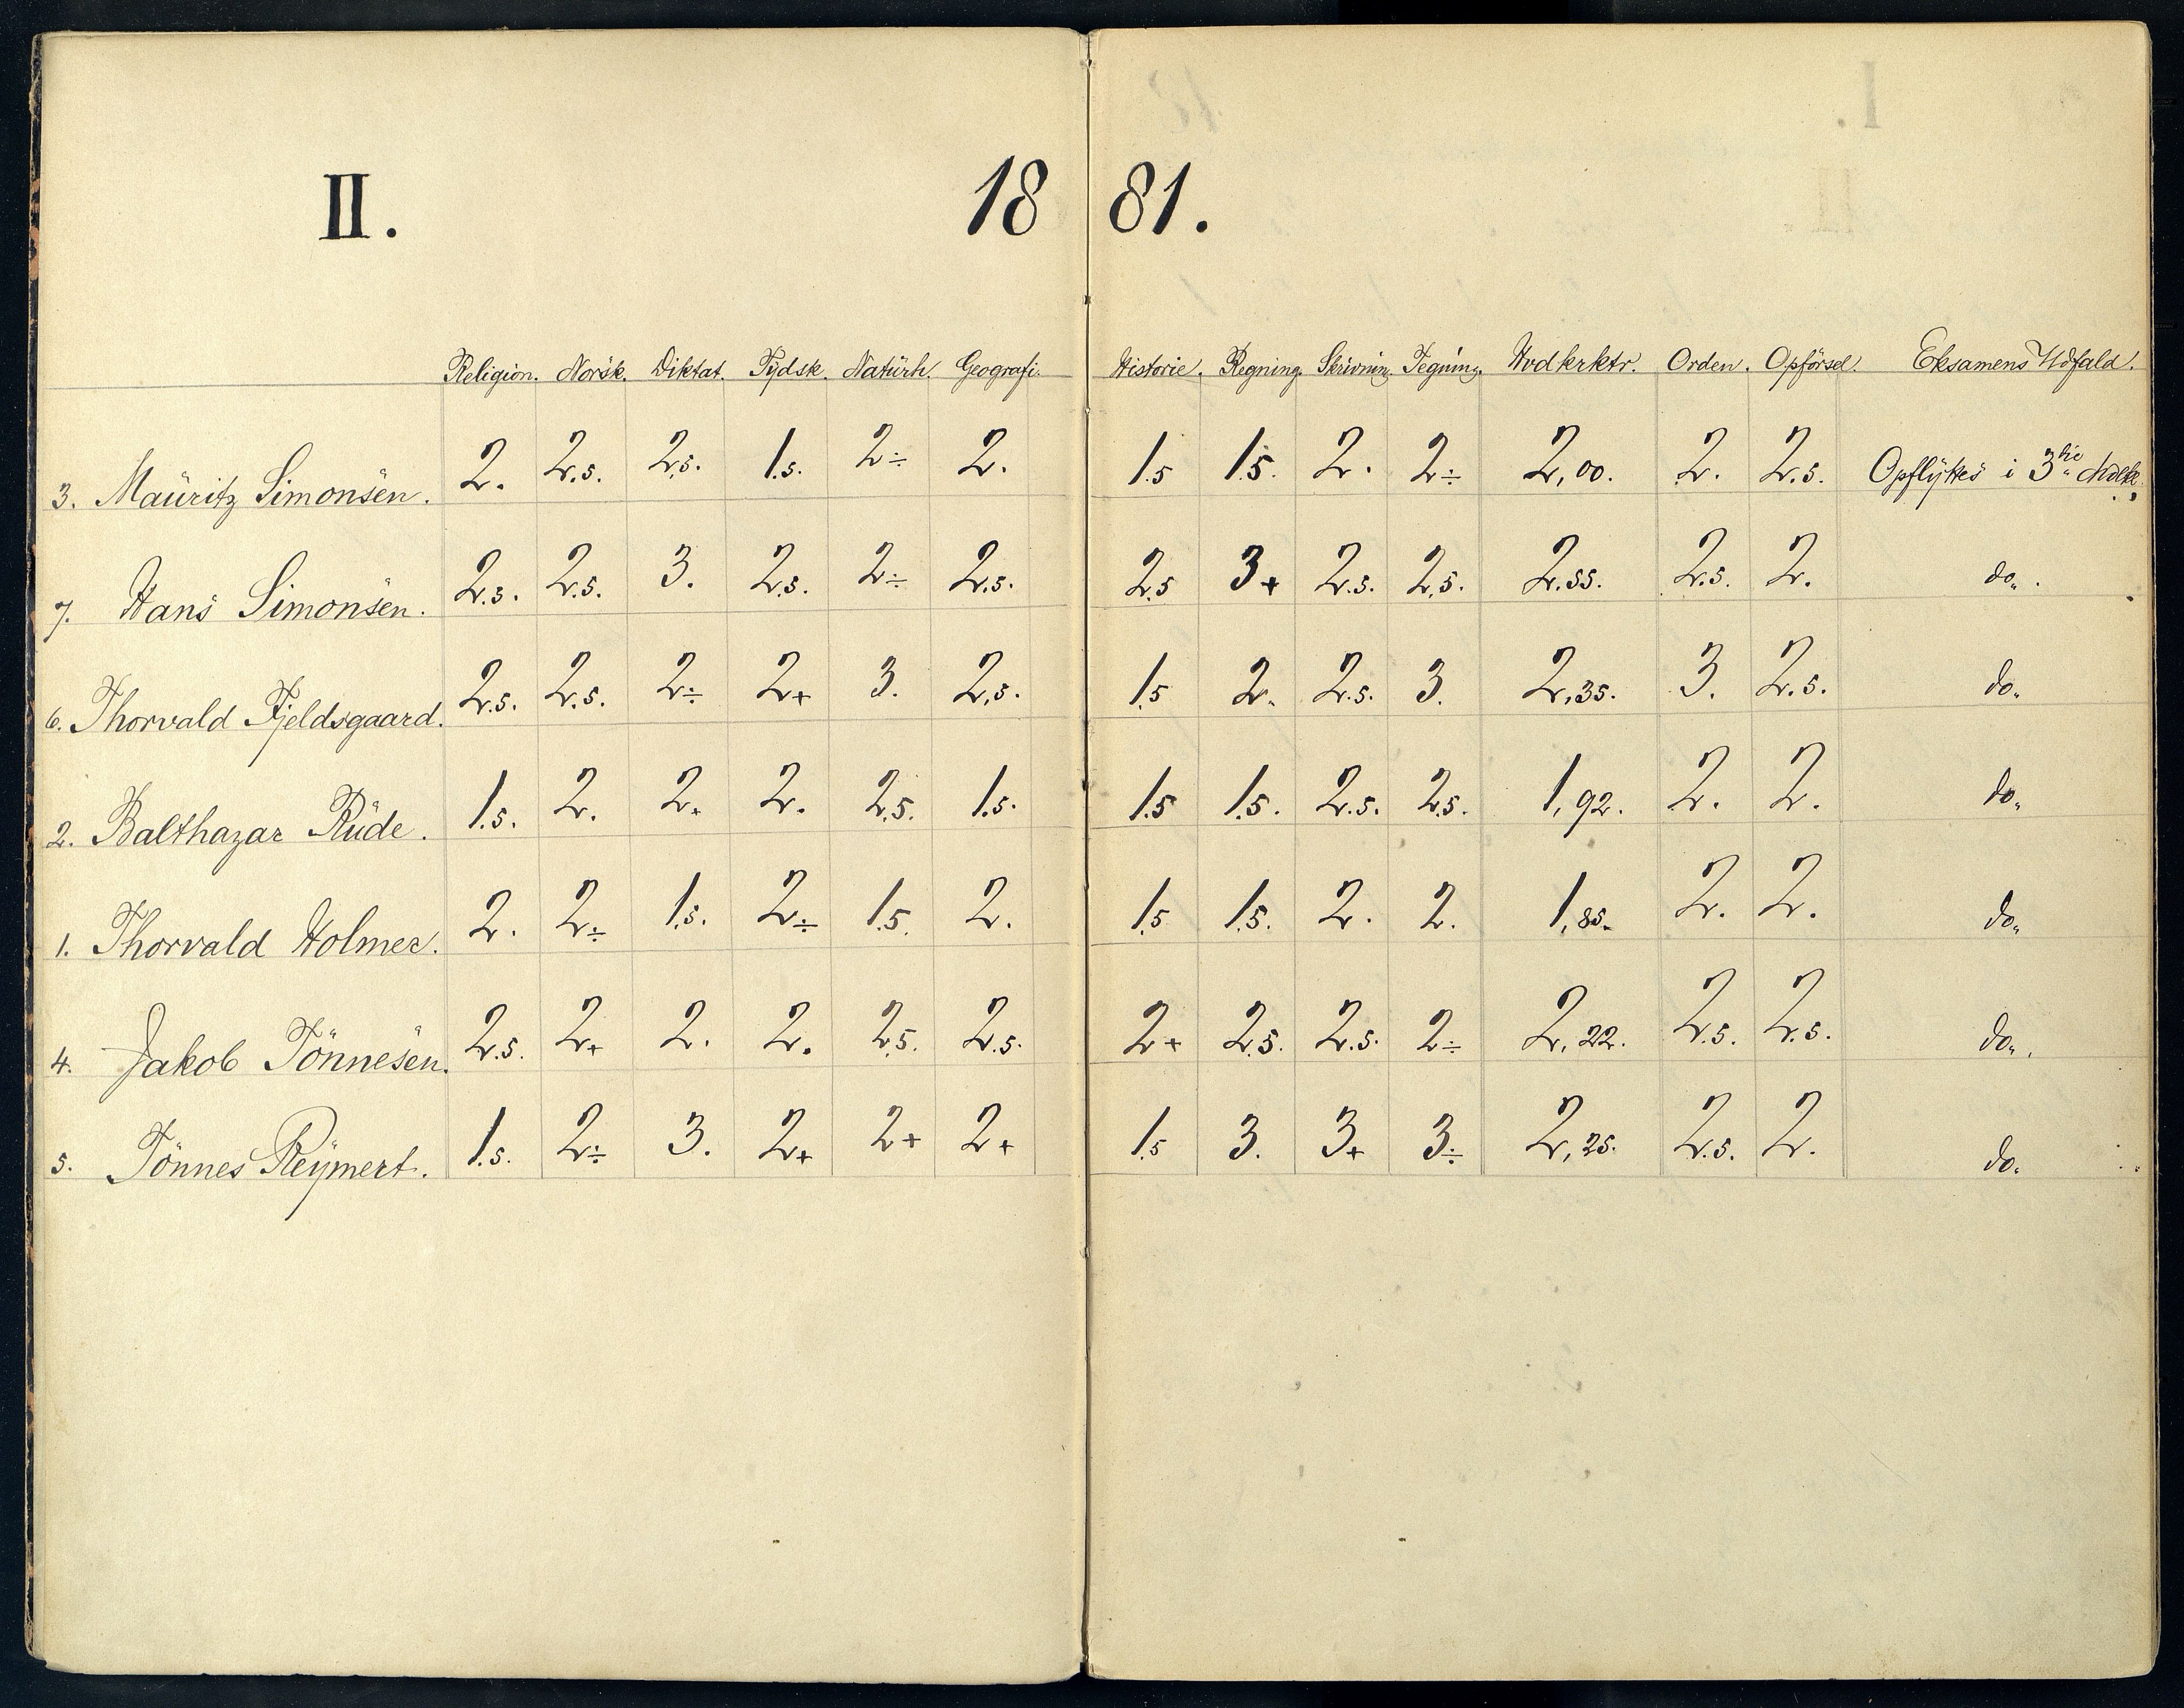 II. 1881.
Religion. Norsk. Diktat. Tydsk. Naturh. Geografi. Historie. Regning. Skrivning. Tegning. Hvdkrktr. Orden. Opförsel. Eksamens Udfald.
3. Mauritz Simonsen. 2. 2.5. 2.5. 1.5. 2÷ 2. 1.5 1.5. 2. 2÷ 2,00. 2. 2.5. Opflyttes i 3die
7. Hans Simonsen. 2.5. 2.5. 3. 2.5. 2÷ 2.5. 2.5 3+ 2.5. 2.5. 2.55. 2.5. 2. do.
6. Thorvald Fjeldsgaard. 2.5. 2.5. 2÷ 2+ 3. 2.5. 1.5 2. 2.5. 3. 2,35. 3. 2.5. do.
2. Balthazar Rude. 1.5. 2. 2+ 2. 2.5. 1.5. 1.5 1.5. 2.5. 2.5. 1,92. 2. 2. do.
1. Thorvald Holmer. 2. 2÷ 1.5. 2÷ 1.5. 2. 1.5 1.5. 2. 2. 1,85. 2. 2. do.
4. Jakob Tönnesen. 2.5. 2+ 2. 2. 2.5. 2.5. 2+ 2.5. 2.5. 2÷ 2,22. 2.5. 2.5. do.
5. Tönnes Reymert. 1.5. 2÷ 3. 2+ 2+ 2+ 1.5 3. 3+ 3÷ 2,25. 2.5. 2. do.